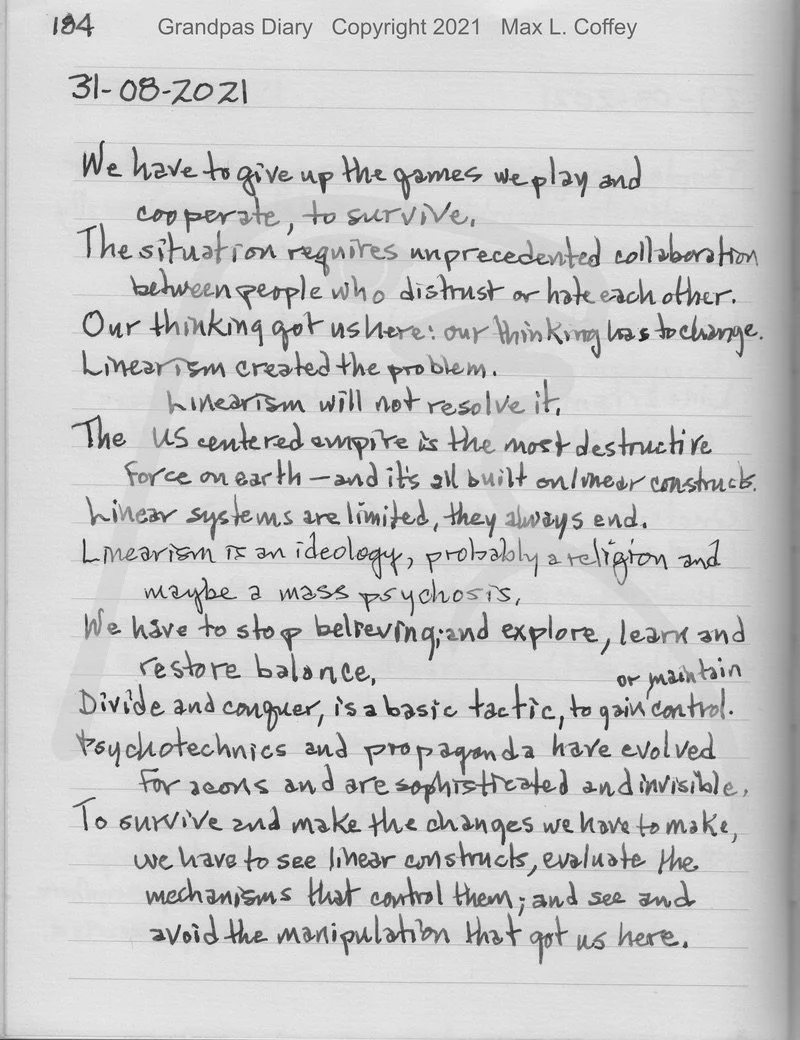 184 Grandpas Diary Copyright 2021 Max L. Coffey
31-08-2021
We have to give up the games we play and
cooperate, to survive.
The situation requires unprecedented collaboration
between people who distrust or hate each other.
Our thinking got us here: our thinking has to change.
Linearism created the problem.
Linearism will not resolve it.
The US centered empire is the most destructive
force on earth – and it's all built on linear constructs.
Linear systems are limited, they always end.
Linearism is an ideology, probably a religion and
maybe a mass psychosis.
We have to stop believing; and explore, learn and
restore balance.
or maintain
Divide and conquer, is a basic tactic, to gain control.
Psychotechnics and propaganda have evolved
for aeons and are sophisticated and invisible.
To survive and make the changes we have to make,
we have to see linear constructs, evaluate the
mechanisms that control them; and see and
avoid the manipulation that got us here.